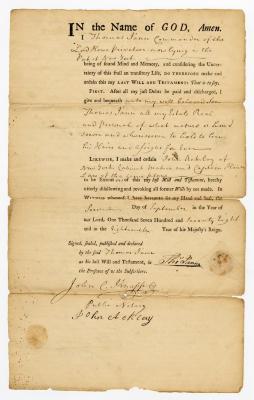 IN the Name of GOD, Amen.
I Thomas Fenn Commander of the
Lord Howe Privateer now lying in the
Port of New York
being of sound Mind and Memory, and considering the Uncer-
tainty of this frail an transitory Life, DO THEREFORE make and
ordain this my LAST WILL AND TESTAMENT: That is to say,
FIRST. After all my just Debts be paid and discharged, I
give and bequeath unto my well beloved Son
Thomas Fenn all my Estate Real
and Personal of what nature or kind
soever and wheresoever to hold to him
his Heirs and assigns for ever
LIKEWISE, I make and ordain John Ackley of
New York Cabinet Maker and
to be Execut ors of this my last Will and Testament, hereby
utterly disallowing and revoking all former Wills by me made. IN
WITNESS whereof I have hereunto set my Hand and Seal, the
Day of September in the Year of
our Lord, One Thousand Seven Hundred and Seventy Eight
and in the Eighteenth Year of his Majesty's Reign.
Signed, sealed, published and declared
by the said Thomas Fenn
as his last Will and Testament, in
the Presence of us the Subscribers.
Thos Fenn
John C Knapp
Public Notary
John Ackley